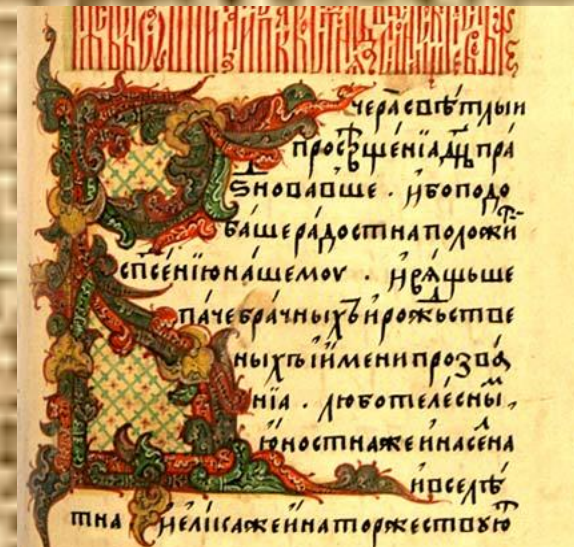 Вчера́ свѣ́тлыи
просвѣще́нїа дн҃ь пра
ѕновавше . и҆бо подо
ба́ше ра́достна положи
сп҃се́нїю на́шемоу . и҆ вѧ́щьше
па́че бра́чныхъ и҆ рожьстве
ныхъ и҆ и҆мени прозва
нїа . любо теле́сны
ю҆ностна же и҆
вселѣ
тна и҆ели́ка же и҆на торжествꙋю